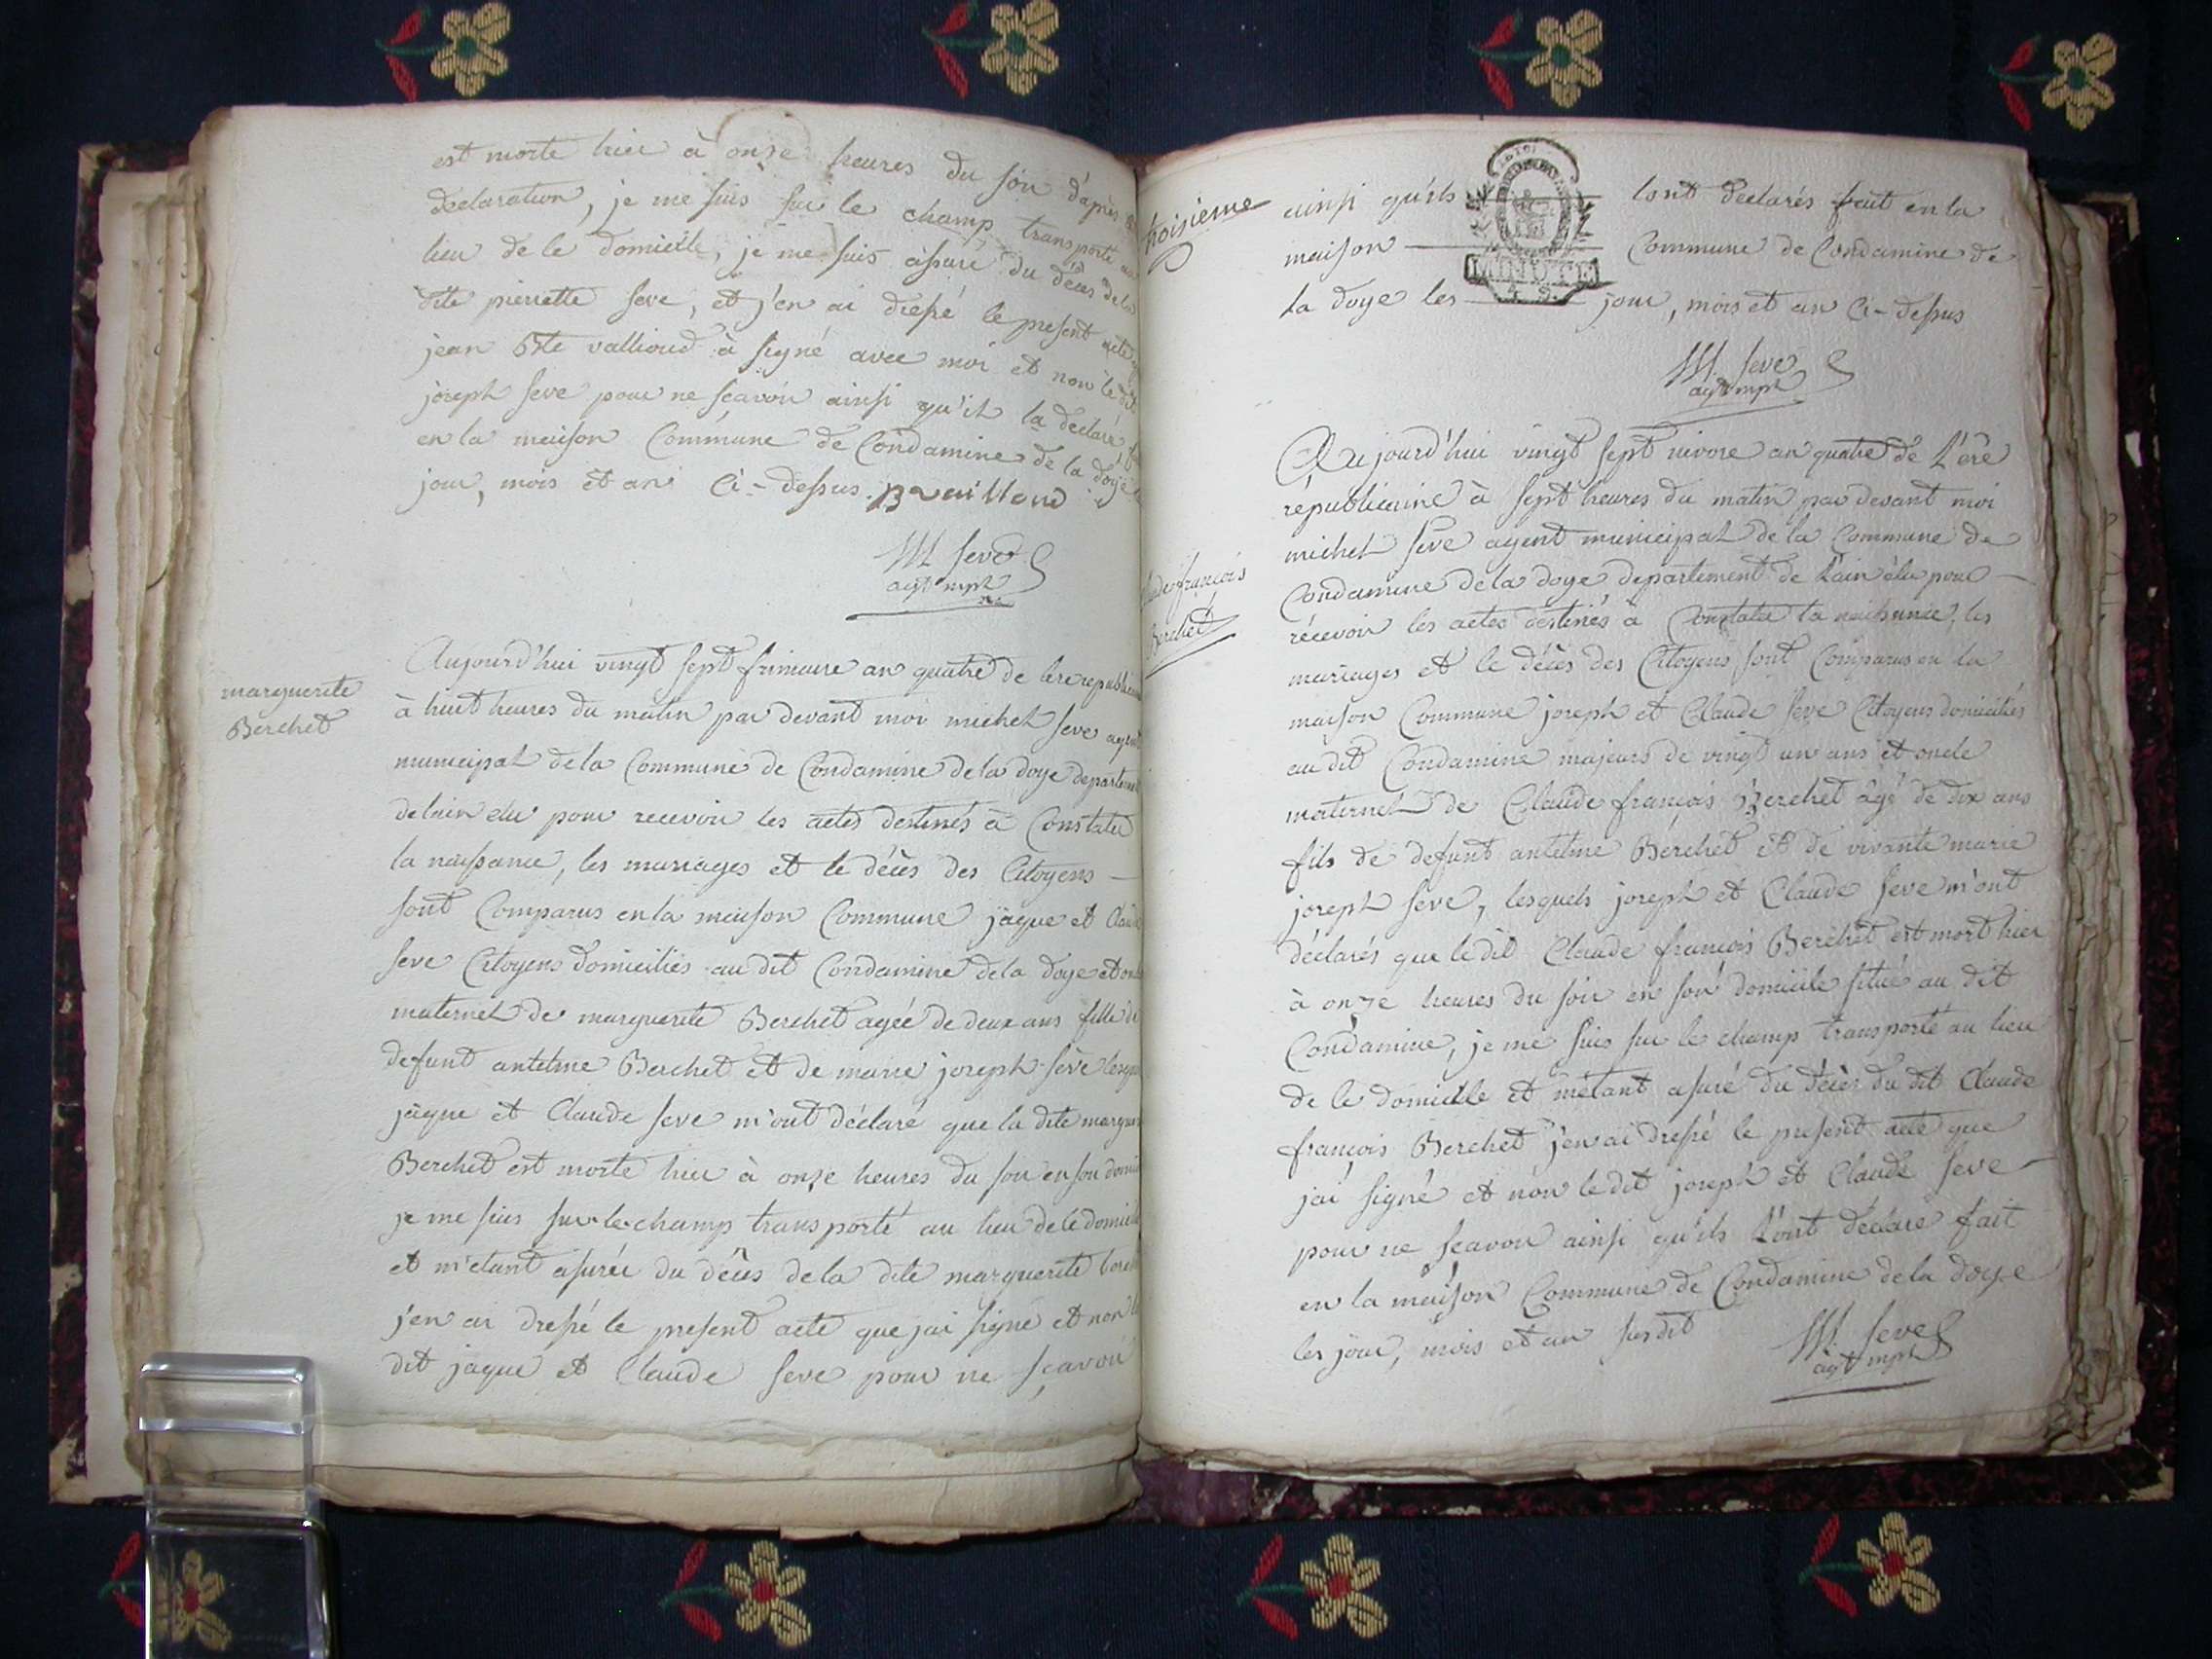 est morte hier à onze heures du soir d'après
declaration, je me suis sur le champ transporté au
lieu de le domicille, je me suis assuré du décès de la
dite pierrette seve, et j'en ai dressé le present acte
jean Bte vallioud à signé avec moi et non le dit
joseph seve pour ne scavoir ainsi qu'il la declaré
en la maison Commune de Condamine de la doye
jour, mois et an Ci-dessus
M seve
agt mpl
marguerite
Berchet
Aujourd'hui vingt sept frimaire an quatre de lere republicaine
à huit heures du matin par devant moi michel seve agent
municipal de la Commune de Condamine de la doye departement
de lain elu pour recevoir les actes destinés à Constater
la naissance, les mariages et le décès des Citoyens
sont Comparus en la maison Commune jaque et Claude
seve Citoyens domiciliés au dit Condamine de la doye et oncle
maternel de marguerite Berchet agée de deux ans fille de
defunt antelme Berchet et de marie joseph seve lesquels
jaque et Claude seve m'ont déclaré que la dite marguerite
Berchet est morte hier à onze heures du soir en son domicile
je me suis sur le champ transporté au lieu de le domicille
et m'etant assurée du décès de la dite marguerite berchet
j'en ai dressé le present acte que jai signé et non le
dit jaque et Claude seve pour ne scavoir
troisieme
ainsi qu'ils lont declarés fait en la
maison Commune de Condamine de
la doye les jour, mois et an Ci-dessus
MINUTE
M seve
agt mpl
Claude françois
Berchet
Aujourd'hui vingt sept nivose an quatre de L'ère
republicaine à sept heures du matin par devant moi
michel seve agent municipal de la Commune de
Condamine de la doye departement de L'ain elu pour
récevoir les actes destinés à Constater la naissance, les
mariages et le décès des Citoyens sont Comparus en la
maison Commune joseph et Claude seve Citoyens domiciliés
au dit Condamine majeurs de vingt un ans et oncle
maternel de Claude françois Berchet âgé de dix ans
fils de defunt antelme Berchet et de vivante marie
joseph seve, lesquels joseph et Claude seve m'ont
déclarés que le dit Claude françois Berchet est mort hier
à onze heures du soir en son domicile situé au dit
Condamine, je me suis sur le champ transporté au lieu
de le domicille et m'etant assuré du décès du dit Claude
françois Berchet j'en ai dressé le present acte que
jai signé et non le dit joseph et Claude seve
pour ne scavoir ainsi qu'ils L'ont declaré fait
en la maison Commune de Condamine de la doye
les jour, mois et an susdit
M seve
agt mpl